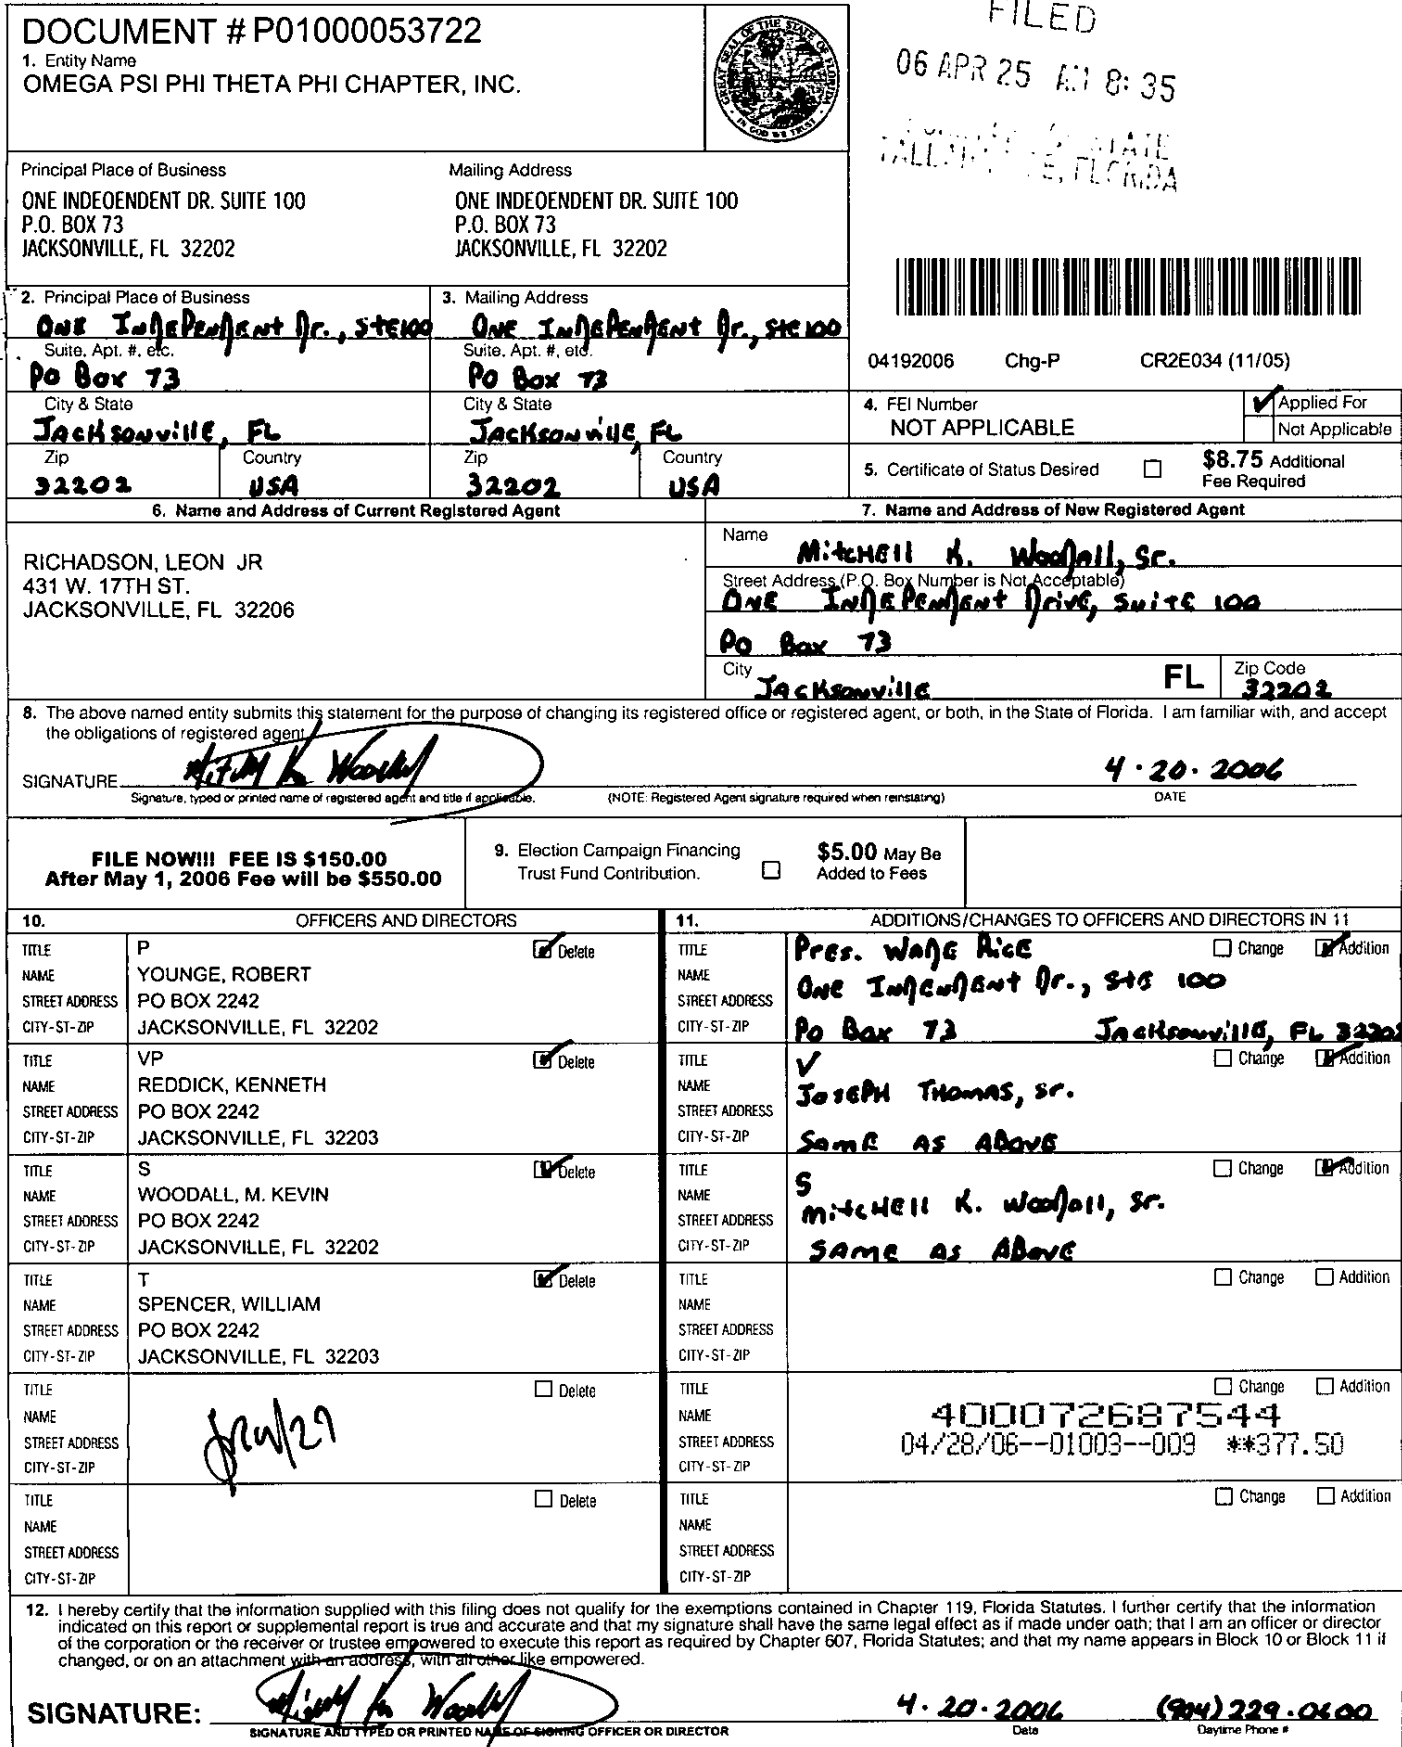 DOCUMENT # P01000053722
1. Entity Name
OMEGA PSI PHI THETA PHI CHAPTER, INC.
GREAT SEAL OF THE STATE OF FLORIDA
IN GOD WE TRUST
FILED
06 APR 25 AM 8:35
STATE
FLORIDA
Principal Place of Business
ONE INDEOENDENT DR. SUITE 100
P.O. BOX 73
JACKSONVILLE, FL 32202
Mailing Address
ONE INDEOENDENT DR. SUITE 100
P.O. BOX 73
JACKSONVILLE, FL 32202
2. Principal Place of Business
One Independent Dr., Ste 100
Suite, Apt. #, etc.
PO Box 73
City & State
Jacksonville, FL
Zip
32202
Country
USA
3. Mailing Address
One Independent Dr., Ste 100
Suite, Apt. #, etc.
PO Box 73
City & State
Jacksonville, FL
Zip
32202
Country
USA
04192006 Chg-P CR2E034 (11/05)
4. FEI Number
NOT APPLICABLE
Applied For
Not Applicable
5. Certificate of Status Desired
$8.75 Additional
Fee Required
6. Name and Address of Current Registered Agent
RICHADSON, LEON JR
431 W. 17TH ST.
JACKSONVILLE, FL 32206
7. Name and Address of New Registered Agent
Name
Mitchell K. Woodall, Sr.
Street Address (P.O. Box Number is Not Acceptable)
One Independent Drive, Suite 100
PO Box 73
City
Jacksonville
FL
Zip Code
32202
8. The above named entity submits this statement for the purpose of changing its registered office or registered agent, or both, in the State of Florida. I am familiar with, and accept
the obligations of registered agent.
SIGNATURE
4.20.2006
Signature, typed or printed name of registered agent and title if applicable.
(NOTE: Registered Agent signature required when reinstating)
DATE
FILE NOW!!! FEE IS $150.00
After May 1, 2006 Fee will be $550.00
9. Election Campaign Financing
Trust Fund Contribution.
$5.00 May Be
Added to Fees
10. OFFICERS AND DIRECTORS
TITLE P Delete
NAME YOUNGE, ROBERT
STREET ADDRESS PO BOX 2242
CITY-ST-ZIP JACKSONVILLE, FL 32202
TITLE VP Delete
NAME REDDICK, KENNETH
STREET ADDRESS PO BOX 2242
CITY-ST-ZIP JACKSONVILLE, FL 32203
TITLE S Delete
NAME WOODALL, M. KEVIN
STREET ADDRESS PO BOX 2242
CITY-ST-ZIP JACKSONVILLE, FL 32202
TITLE T Delete
NAME SPENCER, WILLIAM
STREET ADDRESS PO BOX 2242
CITY-ST-ZIP JACKSONVILLE, FL 32203
TITLE Delete
NAME
STREET ADDRESS
CITY-ST-ZIP
TITLE Delete
NAME
STREET ADDRESS
CITY-ST-ZIP
11. ADDITIONS/CHANGES TO OFFICERS AND DIRECTORS IN 11
TITLE Pres. Wade Rice Change Addition
NAME One Indendent Dr., Ste 100
STREET ADDRESS
CITY-ST-ZIP PO Box 73 Jacksonville, FL 32202
TITLE V Change Addition
NAME Joseph Thomas, Sr.
STREET ADDRESS
CITY-ST-ZIP Same as Above
TITLE S Change Addition
NAME Mitchell K. Woodall, Sr.
STREET ADDRESS
CITY-ST-ZIP Same as Above
TITLE Change Addition
NAME
STREET ADDRESS
CITY-ST-ZIP
TITLE Change Addition
NAME 400072687544
STREET ADDRESS 04/28/06--01003--009 **377.50
CITY-ST-ZIP
TITLE Change Addition
NAME
STREET ADDRESS
CITY-ST-ZIP
12. I hereby certify that the information supplied with this filing does not qualify for the exemptions contained in Chapter 119, Florida Statutes. I further certify that the information
indicated on this report or supplemental report is true and accurate and that my signature shall have the same legal effect as if made under oath; that I am an officer or director
of the corporation or the receiver or trustee empowered to execute this report as required by Chapter 607, Florida Statutes; and that my name appears in Block 10 or Block 11 if
changed, or on an attachment with an address, with all other like empowered.
SIGNATURE:
4.20.2006 (904) 229.0600
SIGNATURE AND TYPED OR PRINTED NAME OF SIGNING OFFICER OR DIRECTOR
Date
Daytime Phone #